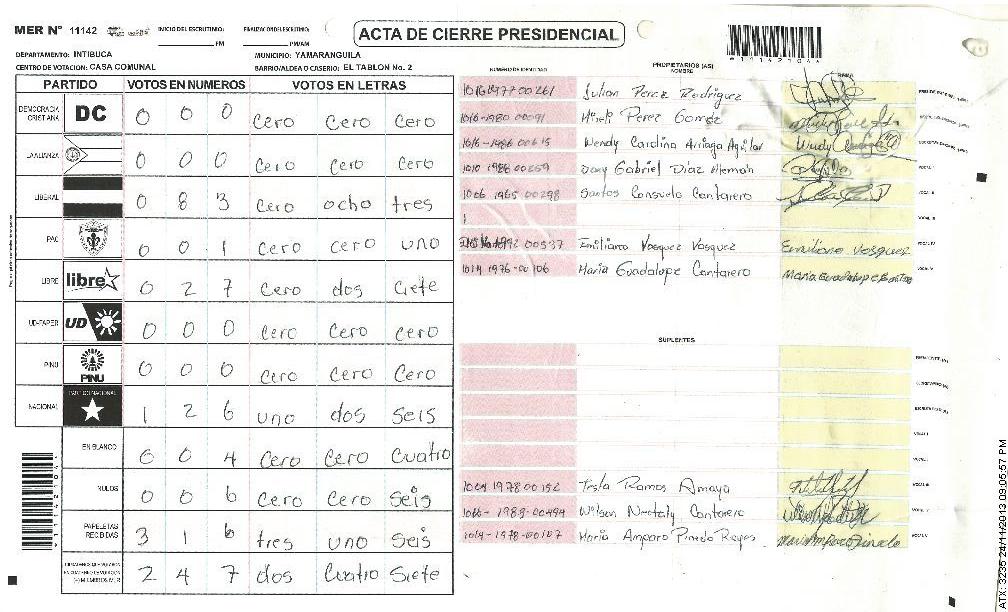 MER N° 11142 INICIO DEL ESCRUTINIO: PM FINALIZACION DEL ESCRUTINIO: PM/AM
ACTA DE CIERRE PRESIDENCIAL
*11142104*
DEPARTAMENTO: INTIBUCA MUNICIPIO: YAMARANGUILA
CENTRO DE VOTACION: CASA COMUNAL BARRIO/ALDEA O CASERIO: EL TABLON No. 2
PARTIDO VOTOS EN NUMEROS VOTOS EN LETRAS
DEMOCRACIA CRISTIANA DC 0 0 0 cero cero cero
LA ALIANZA 0 0 0 cero cero cero
LIBERAL 0 8 3 cero ocho tres
PAC 0 0 1 cero cero uno
LIBRE libre 0 2 7 cero dos ciete
UD-FAPER UD 0 0 0 cero cero cero
PINU PINU 0 0 0 cero cero cero
NACIONAL PARTIDO NACIONAL 1 2 6 uno dos seis
EN BLANCO 0 0 4 cero cero cuatro
NULOS 0 0 6 cero cero seis
PAPELETAS RECIBIDAS 3 1 6 tres uno seis
2 4 7 dos cuatro siete
NUMERO DE IDENTIDAD PROPIETARIOS (AS) NOMBRE FIRMA
1016 1977 00261 Julian Perez Rodriguez
1016-1980 00091 Perez Gomez
1016-1986 00615 Wendy Carolina Arriaga Aguilar
1010 1986 00259 Dany Gabriel Diaz Aleman
1006 1965 00298 Santos Consuelo Cantarero
1
1992 00537 Emiliano Vasquez Vasquez Emiliano Vasquez
1014 1976-00106 Maria Guadalupe Cantarero Maria Guadalupe
SUPLENTES
1004 1978 00152 Tesla Ramos Amaya
1016-1989-00494 Wilson Neptaly Cantarero
1014-1978-00107 Maria Amparo Pineda Reyes Maria Amparo Pineda
ATX: 3235 24/11/2013 09:05:57 PM